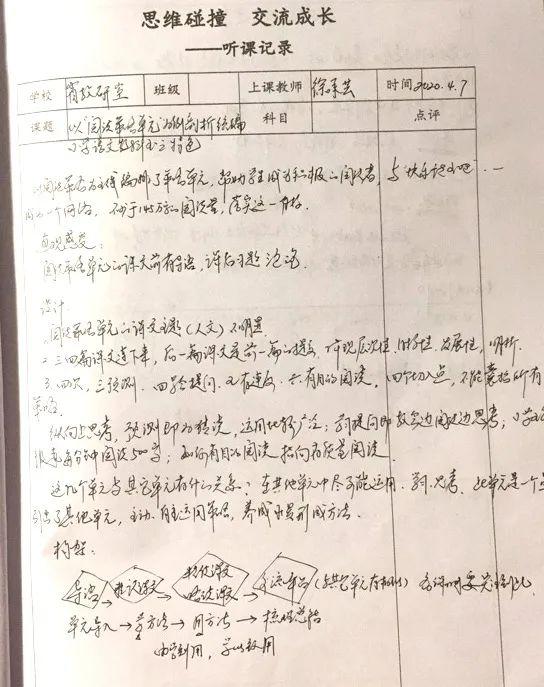 思维碰撞 交流成长
——听课记录
学校 省教研室 班级 上课教师 徐承芸 时间 2020.4.7
课题 以"阅读策略单元"为例剖析统编 科目 点评
小学语文教科书主要特色
以阅读策略为主线编排了策略单元,帮助学生成为积极的阅读者,与"快乐读书吧"
成一个网络,不少于145万的阅读量,落实这一目标。
直观感受:
阅读策略单元的课文前有导语,课后习题 泡泡
设计
阅读策略单元的课文主题(人文)不明显
2.三四篇课文连下来,后一篇课文是前一篇的提升,体现层次性、递进性、发展性,明晰.
3.四次,三预测、四学会提问、五有速度、六有目的阅读,四个切入点,不能囊括所有
策略
纵向上思考,预测即为猜读,运用比较广泛;到提问即教会边阅读边思考;
很龟每分钟阅读500字;如何有目的阅读 指向有质量阅读
这几个单元与其它单元有什么关系?在其他单元中尽可能运用、到思考,此单元是一个
其他单元,主动、自主运用策略,养成习惯形成方法.
构架:
导语 推识课文 精读课文 略读课文 交流平台 (与其它单元有相似)
单元导入→学方法→用方法→梳理总结
由学到用,学以致用